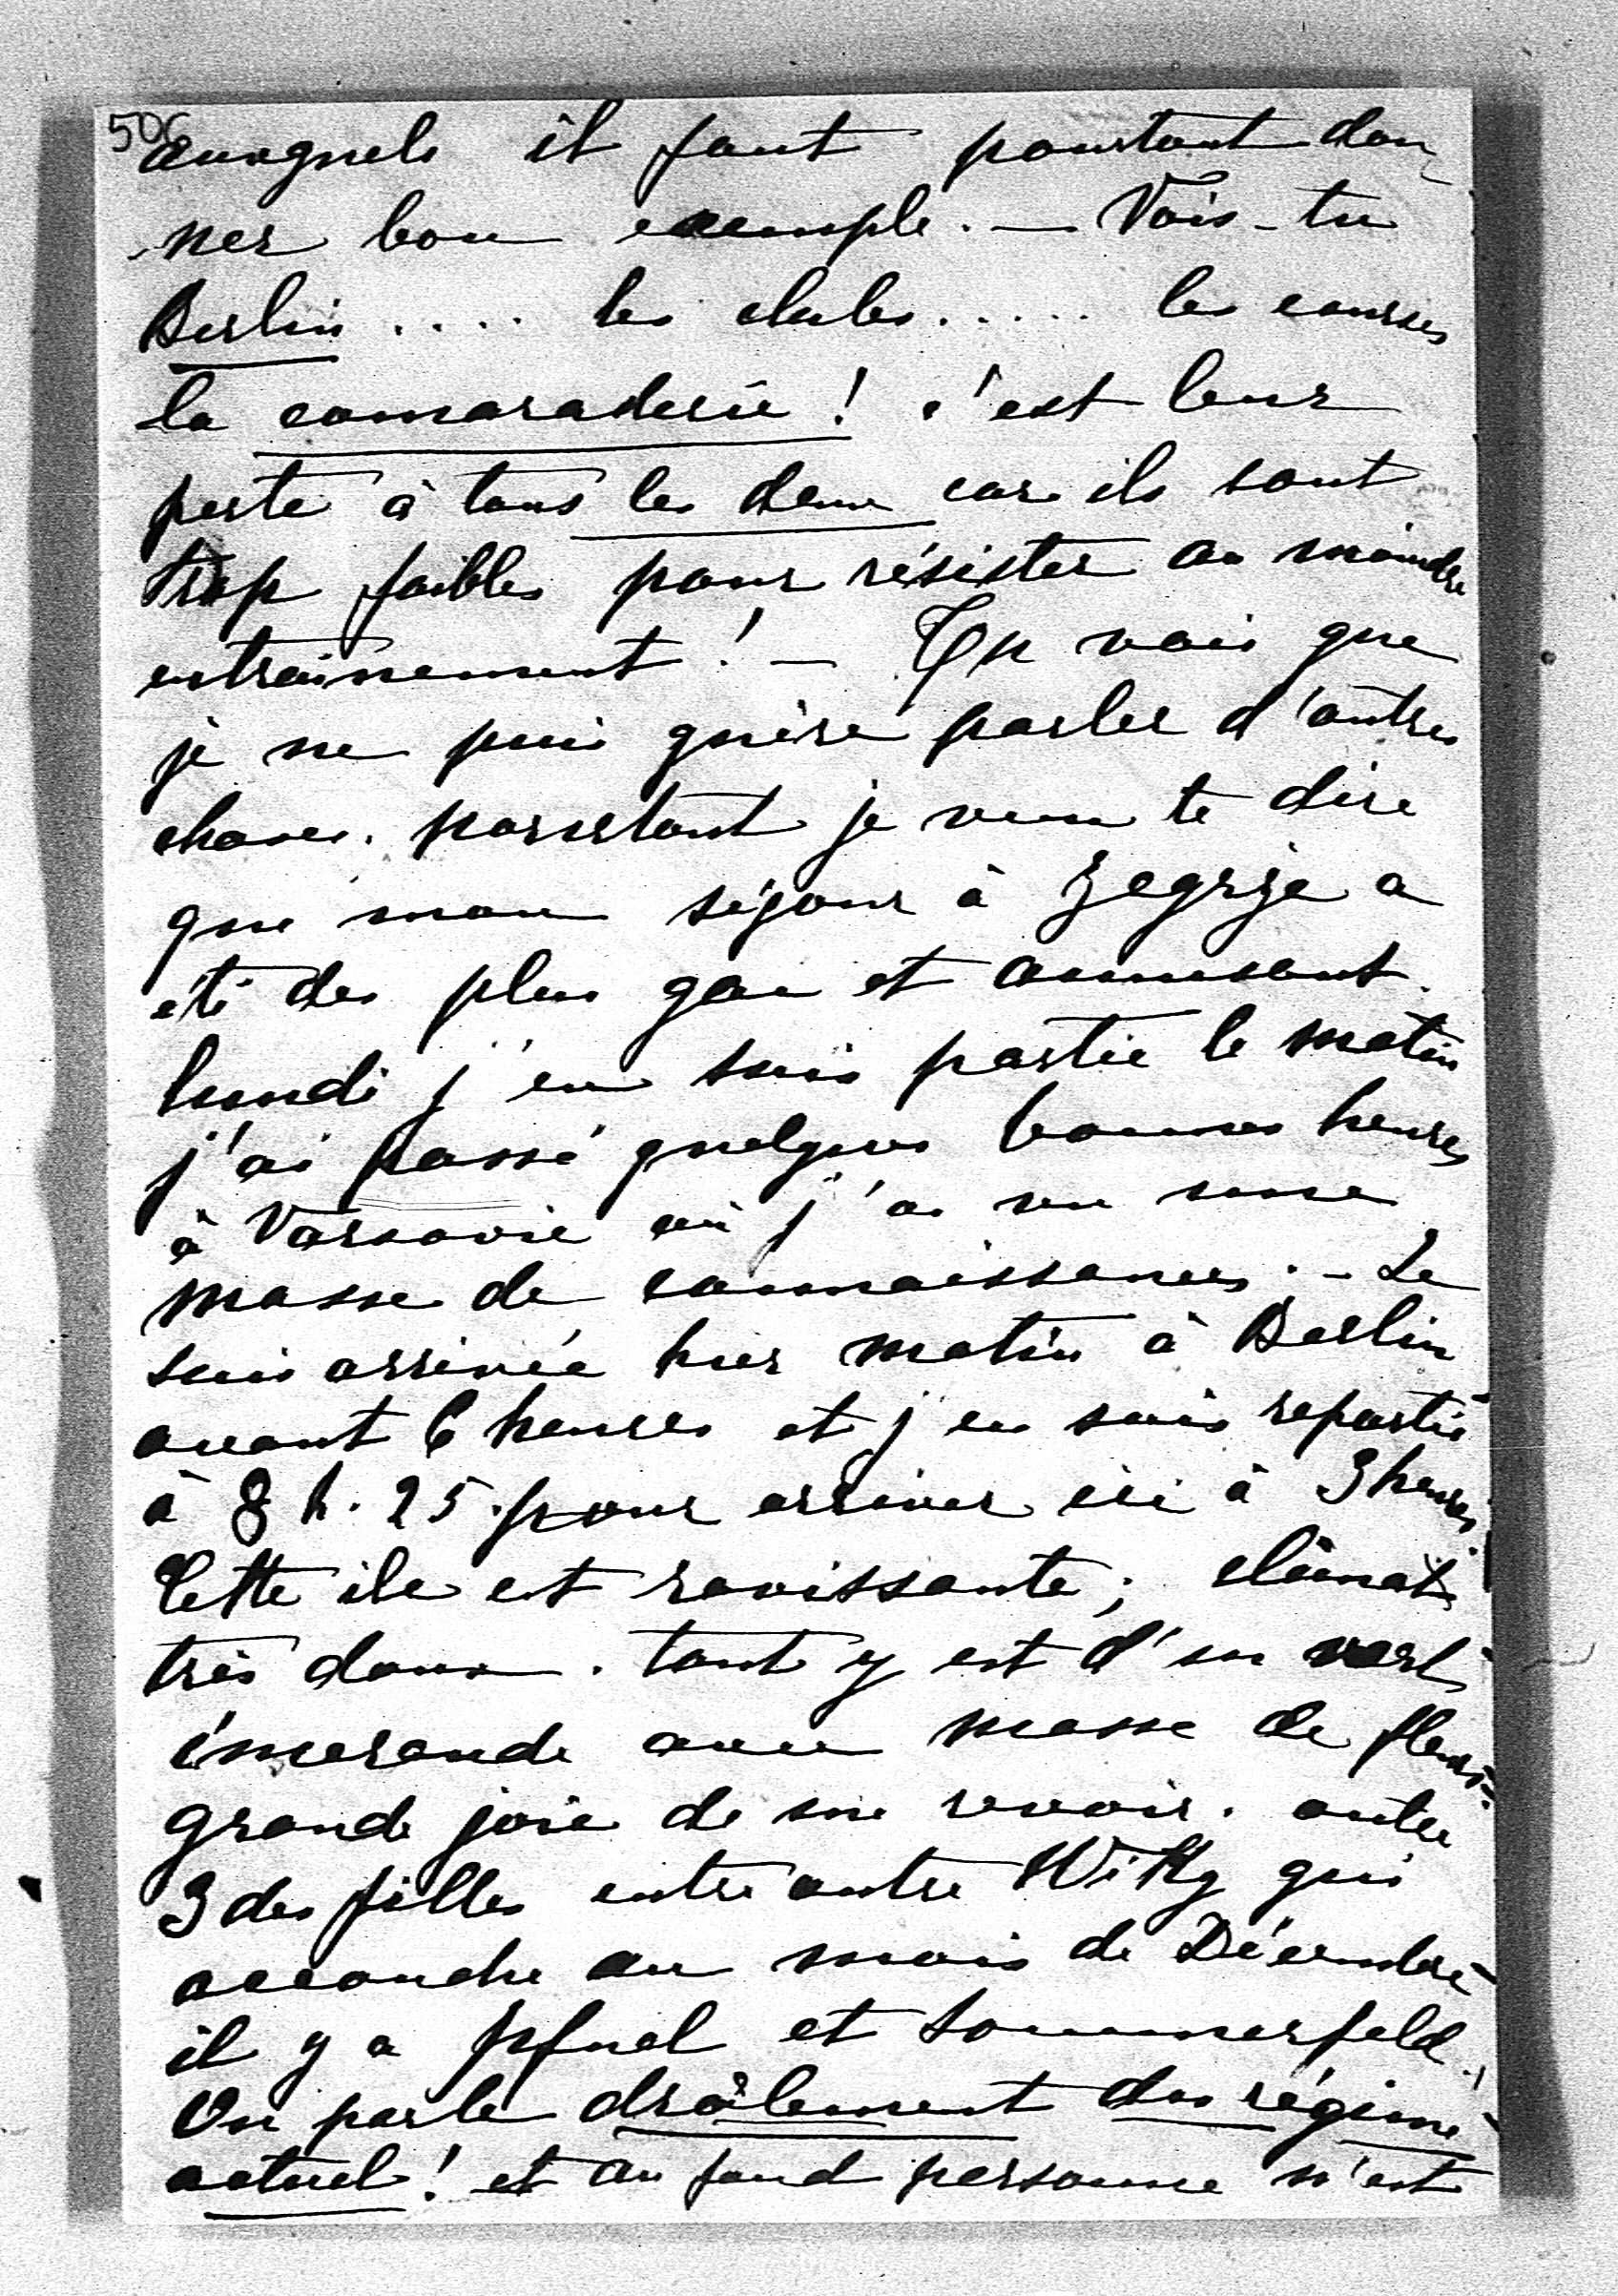 506
auxquels il faut pourtant don-
-ner bon exemple. — Vois-tu
Berlin .... les clubs ..... les courses
la camaraderie ! c'est leur
perte à tous les deux car ils sont
trop faibles pour résister au moindre
entrainement ! — Tu vois que
je ne puis guère parler d'autres
choses. pourtant je veux te dire
que mon séjour à Zegrze a
été des plus gai et amusant.
lundi j'en suis partie le matin
j'ai passé quelques bonnes heures
à Varsovie où j'ai vu une
masse de connaissances. – Je
suis arrivée hier matin à Berlin
avant 6 heures et j'en suis repartie
à 8 h. 25. pour arriver ici à 3 heures
Cette ile est ravissante ; climat
très doux. tout y est d'un vert
émeraude avec masse de fleurs.
grande joie de me revoir. outre
3 des filles entre autre Wi qui
accouche au mois de Décembre
il y a Pfuel et Sommerfeld.
On parle drôlement du régime
actuel ! et au fond personne n'est